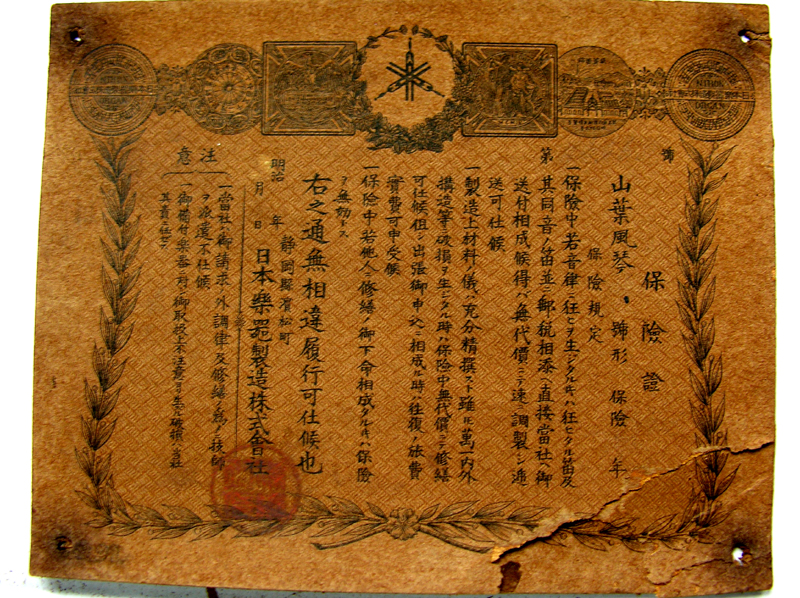 第 號
保險證
山葉風琴 號形 保險 年
保險規定
一保險中若音律ニ狂ヒヲ生シタル時ハ狂ヒタル笛及
其同音ノ笛並ニ郵税相添ヘ直接當社ヘ御
送付相成候得ハ無代價ニテ速ニ調製シ逓
送可仕候
一製造上材料ノ儀ハ充分精撰スト雖ㇺ萬一内外
構造等ニ破損ヲ生シタル時ハ保險中無代價ニテ修繕
可仕候但シ出張御申込ニ相成ル時ハ往復ノ旅費
實費可申受候
一保險中若他人ニ修繕ノ御下命相成タル時ハ保險
ヲ無効トス
右之通無相違履行可仕候也
明治 年 月 日
靜岡縣濱松町
日本樂器製造株式會社
注意
一當社ハ御請求ノ外調律及修繕ノ爲メ技師
ヲ派遣不仕候
一御備付樂器ニ對シ御取扱上不注意ヨリ生シタル破損ハ當社
其責ニ任セス